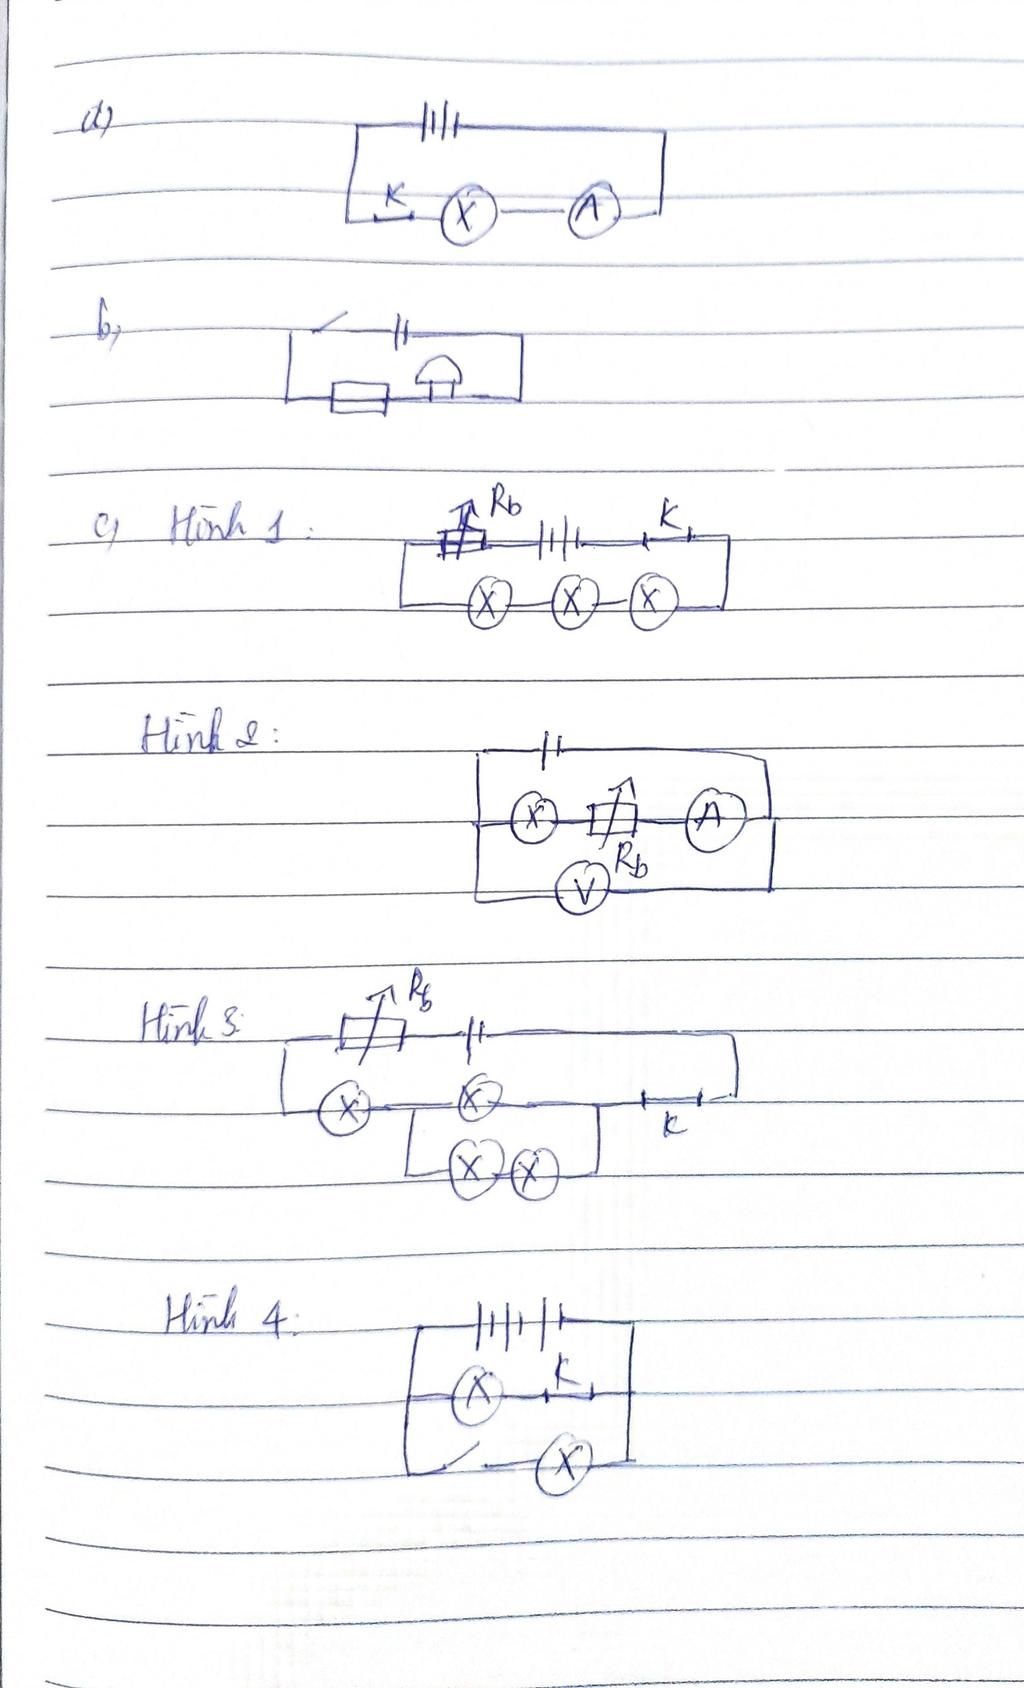 a)
K
X A
b,
c) Hình 1:
Rb K
X X X
Hình 2:
X A
Rb
V
Hình 3:
Rb
X X
K
X X
Hình 4:
K
X
X